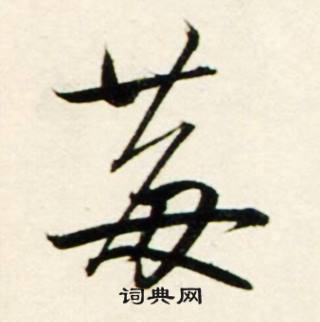 莓
词典网